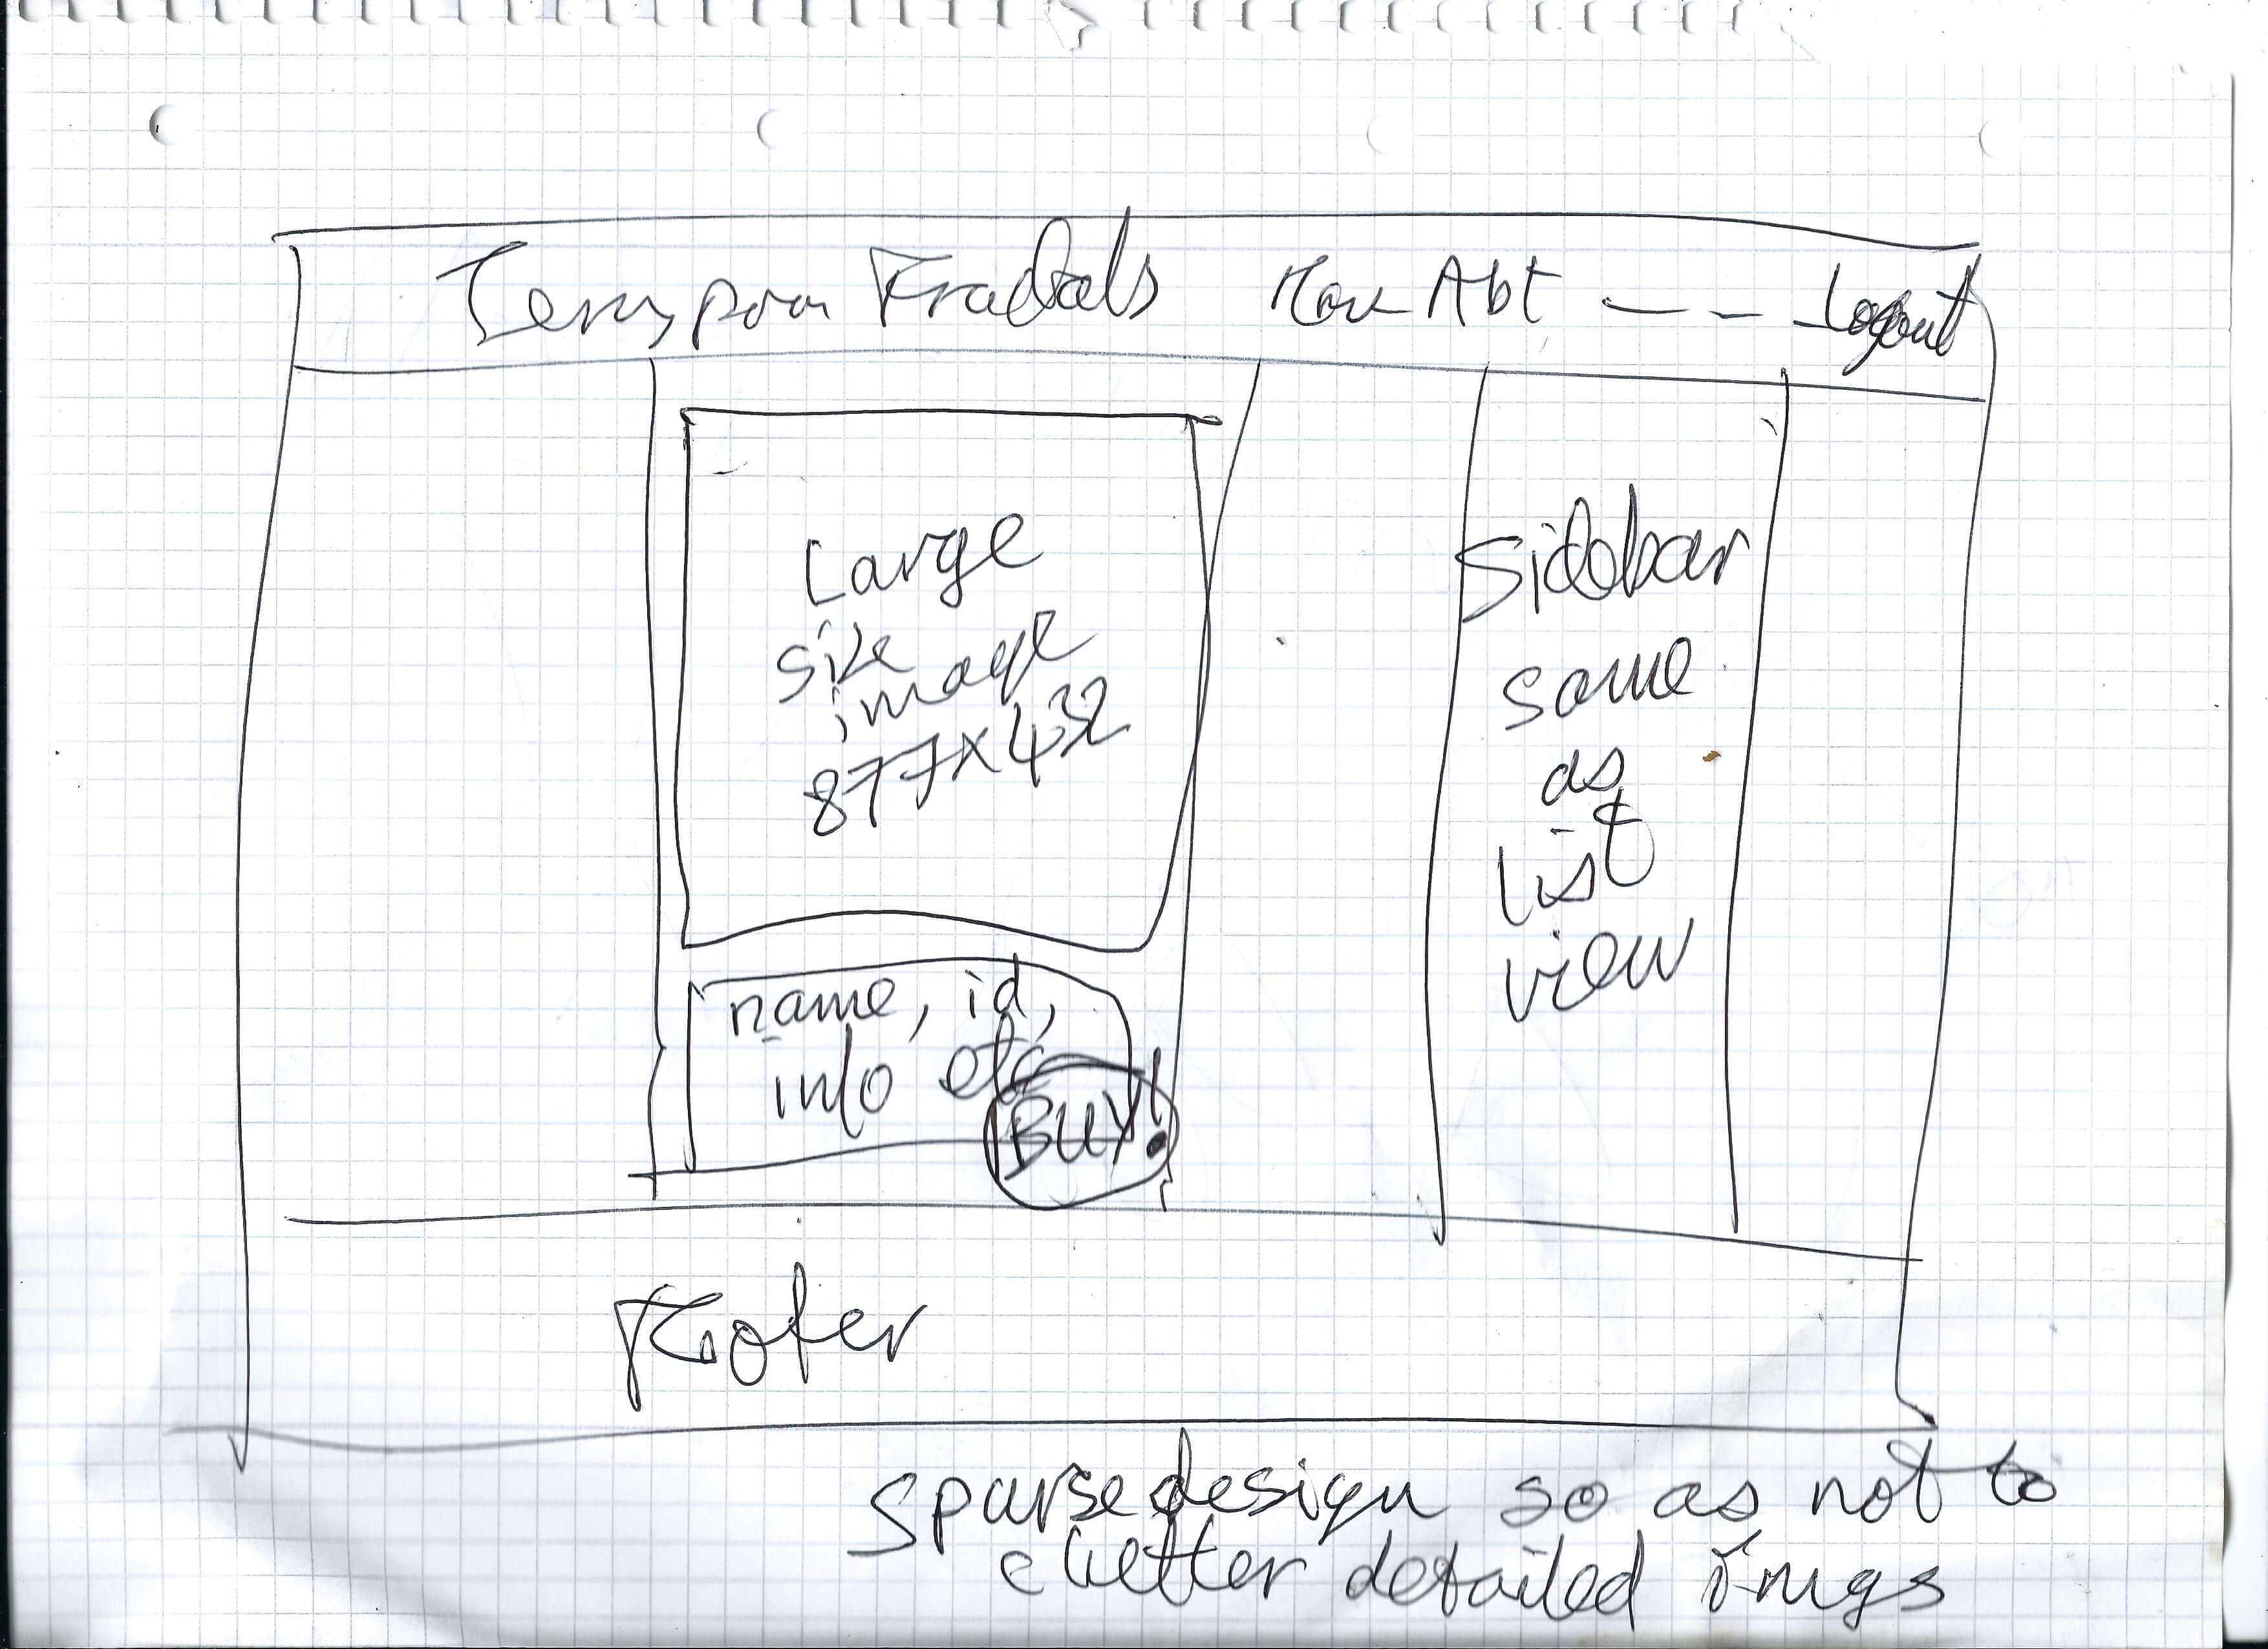 Fractals Abt - - - Logout
Large
size
image
877x432
name, id,
info etc
BUY!
Sidebar
same
as
list
view
sparse design so as not to
clutter detailed imgs